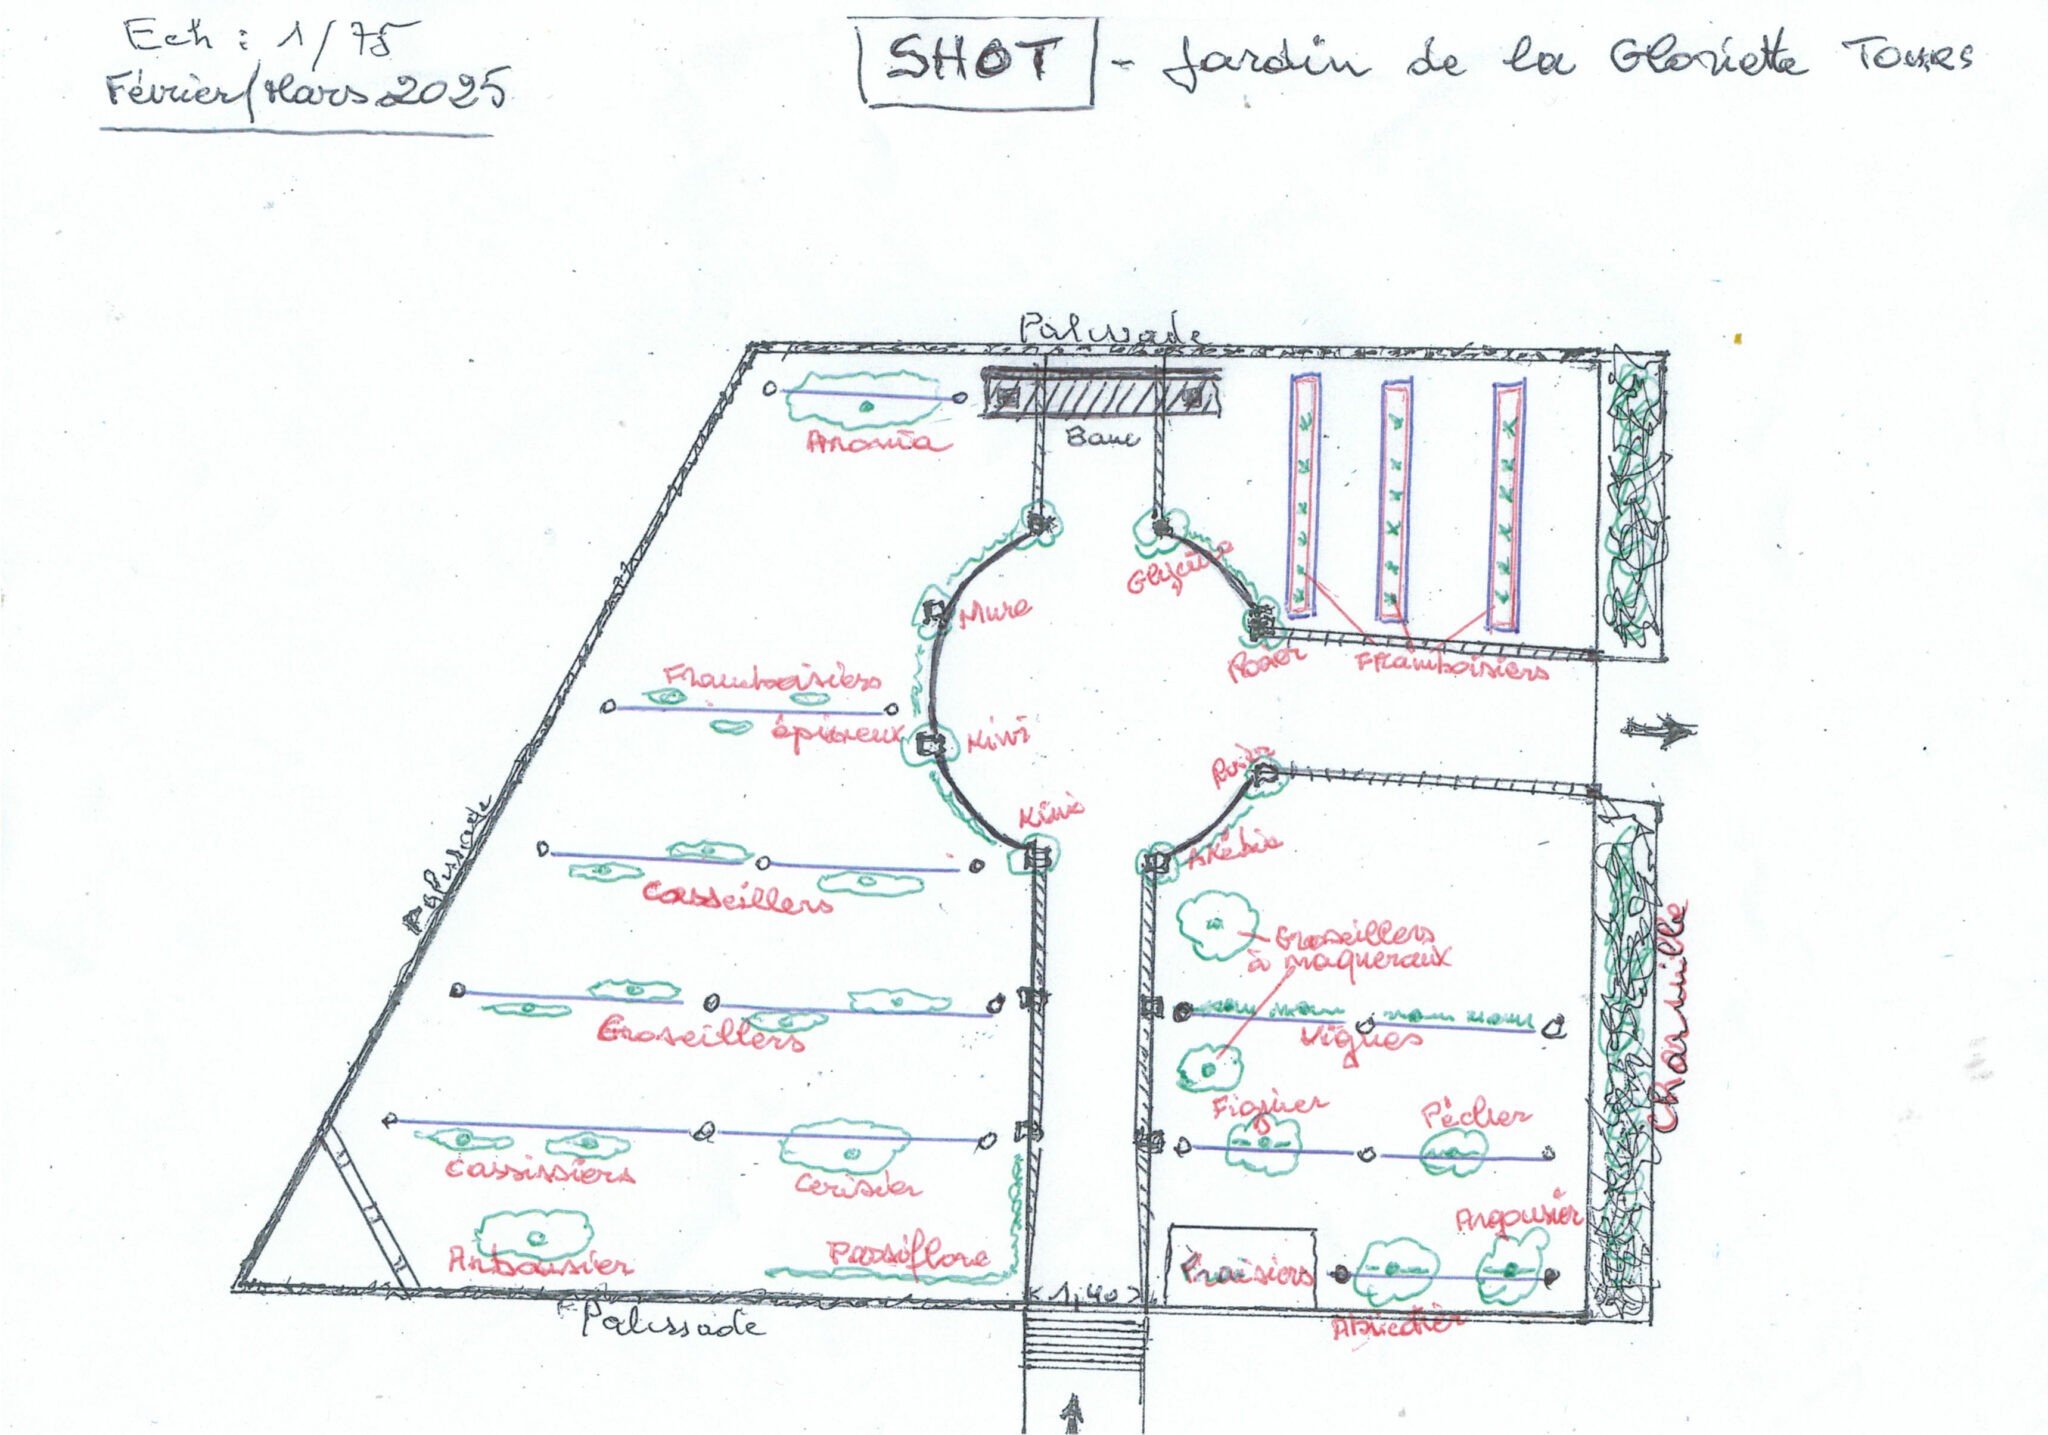 Ech : 1/75
Février/Mars 2025
SHOT - Jardin de la Gloriette Tours
Palissade
Banc
Aronia
Glycine
Mure
Framboisiers
épineux
Kiwi
Rosier
Framboisiers
Rosier
Kiwi
Akébie
Palissade
Casseillers
Groseillers
à maqueraux
Charmille
Groseillers
Vignes
Figuier
Pêcher
Cassissiers
Cerisier
Argousier
Arbousier
Passiflore
Fraisiers
< 1,40 >
Palissade
Abricotier